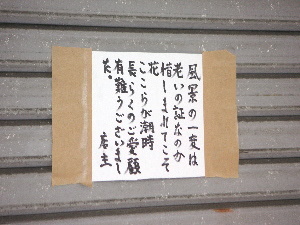 風景の一変は
老いの証なのか
惜しまれてこそ
花
ここらが潮時
長らくのご愛顧
有難うございまし
た。 店主